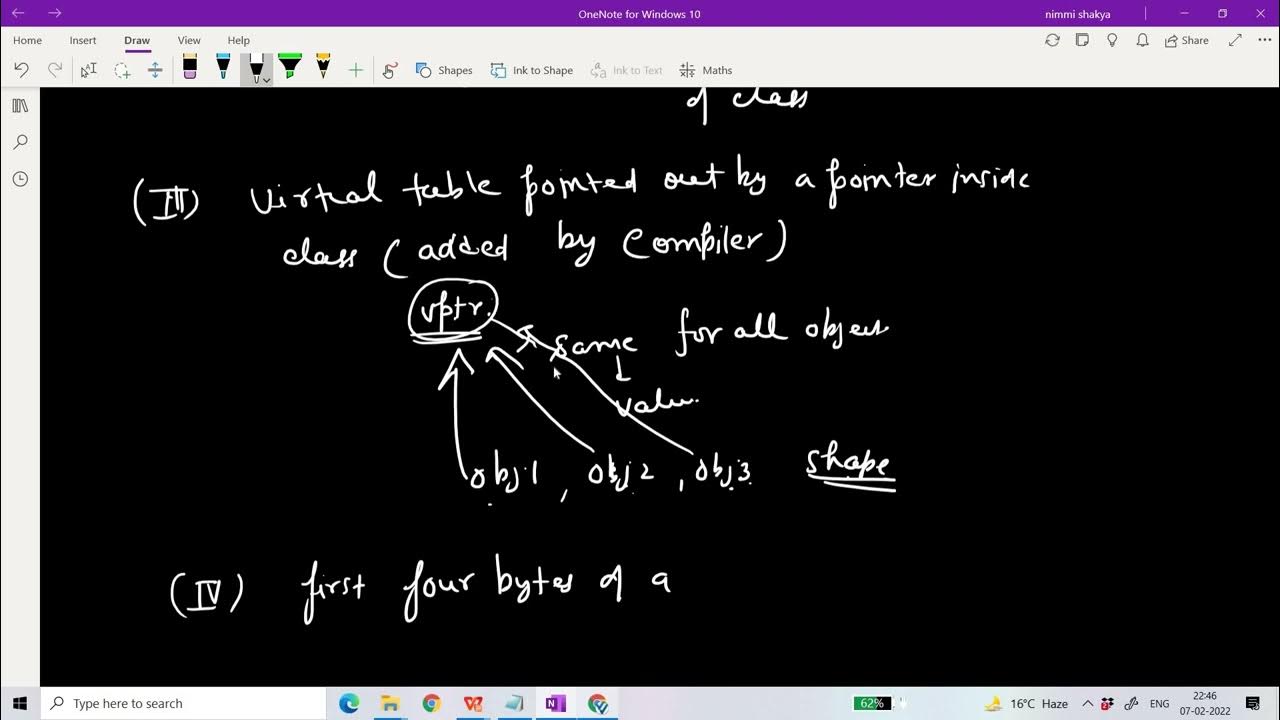 OneNote for Windows 10
nimmi shakya
Home Insert Draw View Help
Share
Shapes Ink to Shape Ink to Text Maths
of class
(III) Virtual table pointed out by a pointer inside
class (added by compiler)
vptr.
same for all object
value.
obj1, obj2, obj3 shape
(IV) first four bytes of a
Type here to search
62%
16°C Haze
ENG
22:46
07-02-2022